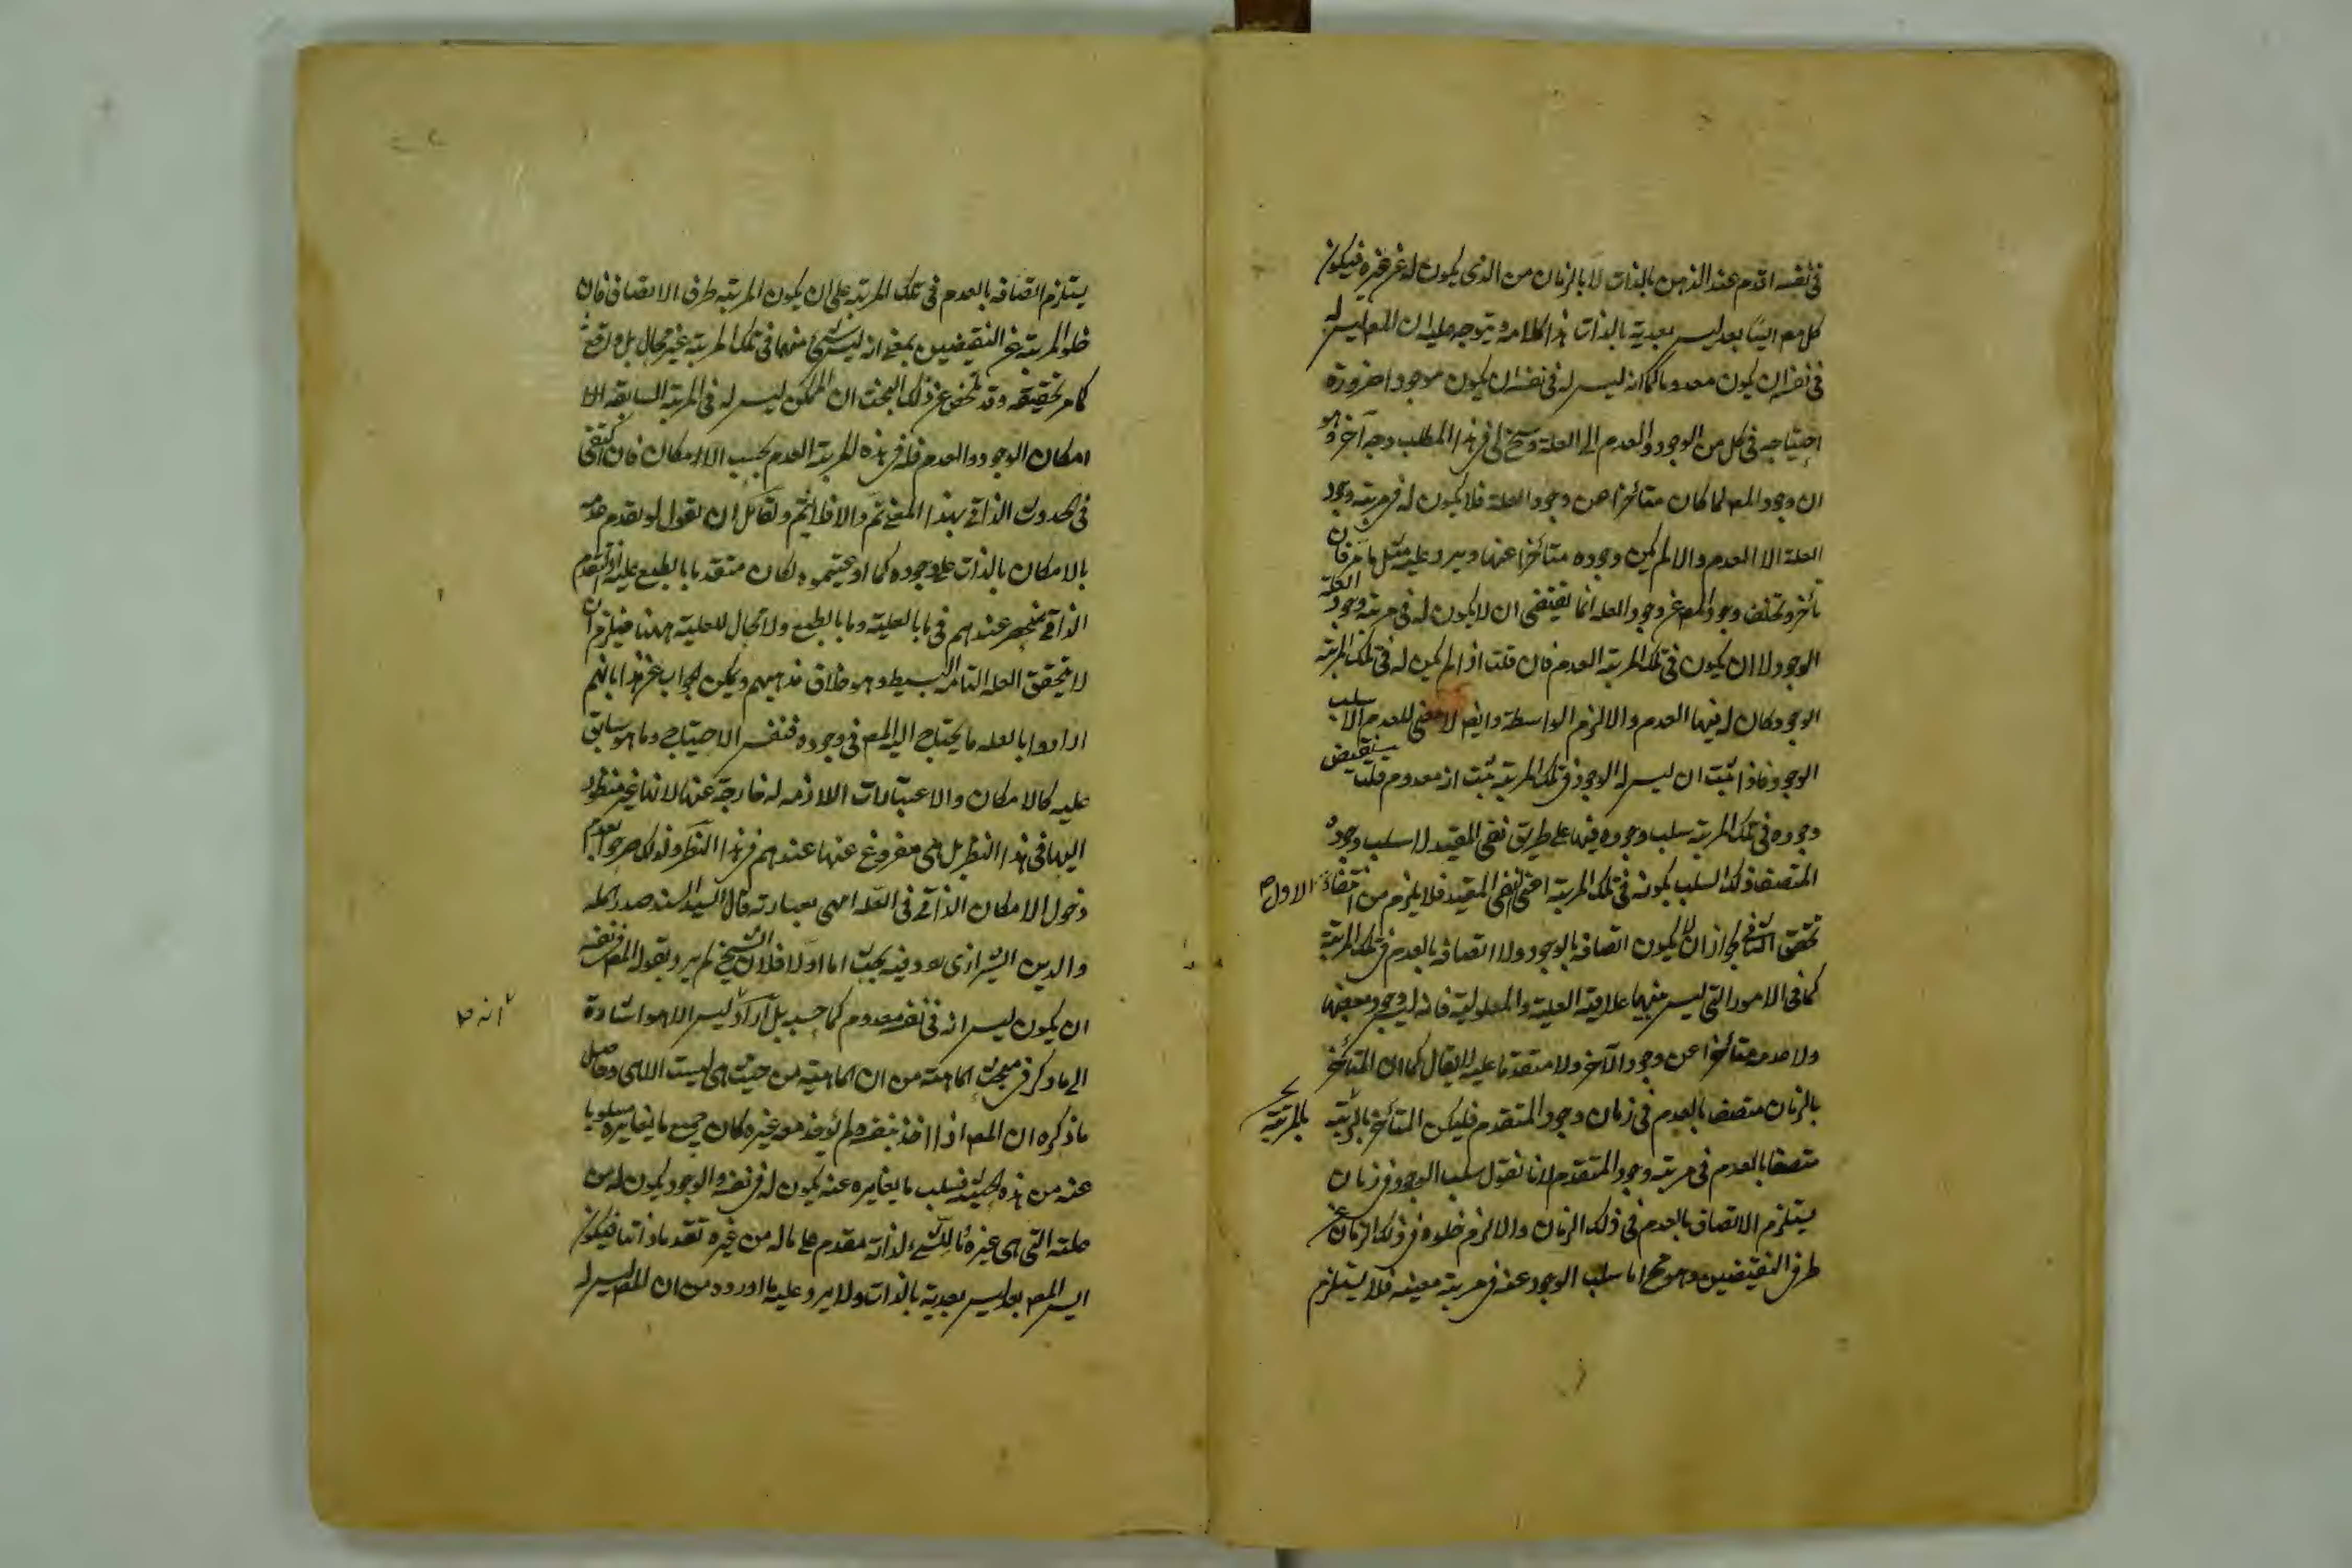 في نفسه اقدم عند الذهن بالذات لا بالزمان من الذي يكون له عن غيره فيكون
كل معم ايسا بعد ليس بعدية بالذات هذا كلامه ويتوجه عليه ان المعم ليس له
في نفسه ان يكون معدوما كما انه ليس له في نفسه ان يكون موجودا ضرورة
احتياجه في كل من الوجود والعدم الى العلة وسنح لى في هذا المطلب وجه آخر وهو
ان وجود المعم لما كان متأخرا عن وجود العلة فلا يكون له في مرتبة وجود
العلة الا العدم والا لم يكن وجوده متأخرا عنها ويرد عليه مثل ما مر فان
تأخر وتخلف وجود المعم عن وجود العله انما يقتضى ان لا يكون له فى مرتبة وجود العلة
الوجود لا ان يكون فى تلك المرتبة العدم فان قلت اذا لم يكن له فى تلك المرتبة
الوجود كان له فيها العدم والا لزم الواسطة وايضا لا معنى للعدم الا سلب
الوجود فاذا ثبت ان ليس له الوجود فى تلك المرتبة ثبت انه معدوم قلنا نقيض
وجوده فى تلك المرتبة سلب وجوده فيها على طريق نفى المقيد لا سلب وجوده
المتصف ذلك السلب بكونه فى تلك المرتبة اعنى النفى المقيد فلا يلزم من انتفاء الاول
تحقق الثانى لجواز ان لا يكون اتصافه بالوجود ولا اتصافه بالعدم فى تلك المرتبة
كما فى الامور التى ليس بينها علاقة العلية والمعلولية فانه ليس وجود بعضها
ولا عدمه متأخرا عن وجود الآخر ولا متقدما عليه لا يقال كما ان المتأخر
بالزمان متصف بالعدم فى زمان وجود المتقدم فليكن المتأخر بالمرتبة
بالمرتبة
متصفا بالعدم فى مرتبة وجود المتقدم لانا نقول سلب الوجود فى زمان
يستلزم الاتصاف بالعدم فى ذلك الزمان والا لزم خلوه فى ذلك الزمان عن
طرفى النقيضين وهو مح اما سلب الوجود عنه فى مرتبة معينه فلا يستلزم
يستلزم اتصافه بالعدم فى تلك المرتبه على ان يكون المرتبه ظرف الاتصاف فان
خلو المرتبة عن النقيضين بمعنى انه ليس شئ منهما فى تلك المرتبة غير محال بل واقع
كما مر تحقيقه وقد تلخص عن ذلك البحث ان الممكن ليس له فى المرتبة السابقه الا
امكان الوجود والعدم فله فى هذه المرتبة العدم بحسب الامكان فان اكتفى
فى الحدوث الذاتى بهذا المعنى تم والا فلا يتم ولقائل ان يقول لو تقدم عدمه
بالامكان بالذات على وجوده كما ادعيتموه لكان متقدما بالطبع عليه اذ التقدم
الذاتى منحصر عندهم فى ما بالعلية وما بالطبع ولا مجال للعلية ههنا فيلزم ان
لا يتحقق العله التامه البسيطه وهو خلاف مذهبهم ويمكن الجواب عن هذا بانهم
ارادوا بالعله ما يحتاج اليه المعم فى وجوده فنفس الاحتياج وما هو سابق
عليه كالامكان والاعتبارات اللازمه له خارجة عنها لانها غير منظور
اليها فى هذا النظر بل هى مفروغ عنها عندهم فى هذا النظر ولذلك صرحوا بعدم
دخول الامكان الذاتى فى العله انتهى بعبارته قال السيد السند صدر المله
والدين الشيرازى وفيه بحث اما اولا فلان الشيخ لم يرد بقوله المعم فى نفسه
ان يكون ليس انه فى نفسه معدوم كما حسبه بل اراد ليس الا هو اشارة
انه
الى ما ذكر فى مبحث الماهية من ان الماهية من حيث هى ليست الا هى وحاصل
ما ذكره ان المعم اذا اخذ بنفسه ولم يؤخذ معه غيره كان جميع ما يغايره مسلوبا
عنه من هذه الحيثية فسلب ما يغايره عنه يكون له فى نفسه والوجود يكون له من
علته التى هى غيره وما للشئ لذاته مقدم على ما له من غيره تقدما ذاتيا فيكون
ايس المعم بعد ليس بعدية بالذات ولا يرد عليه ما اورده من ان المعم ليس له